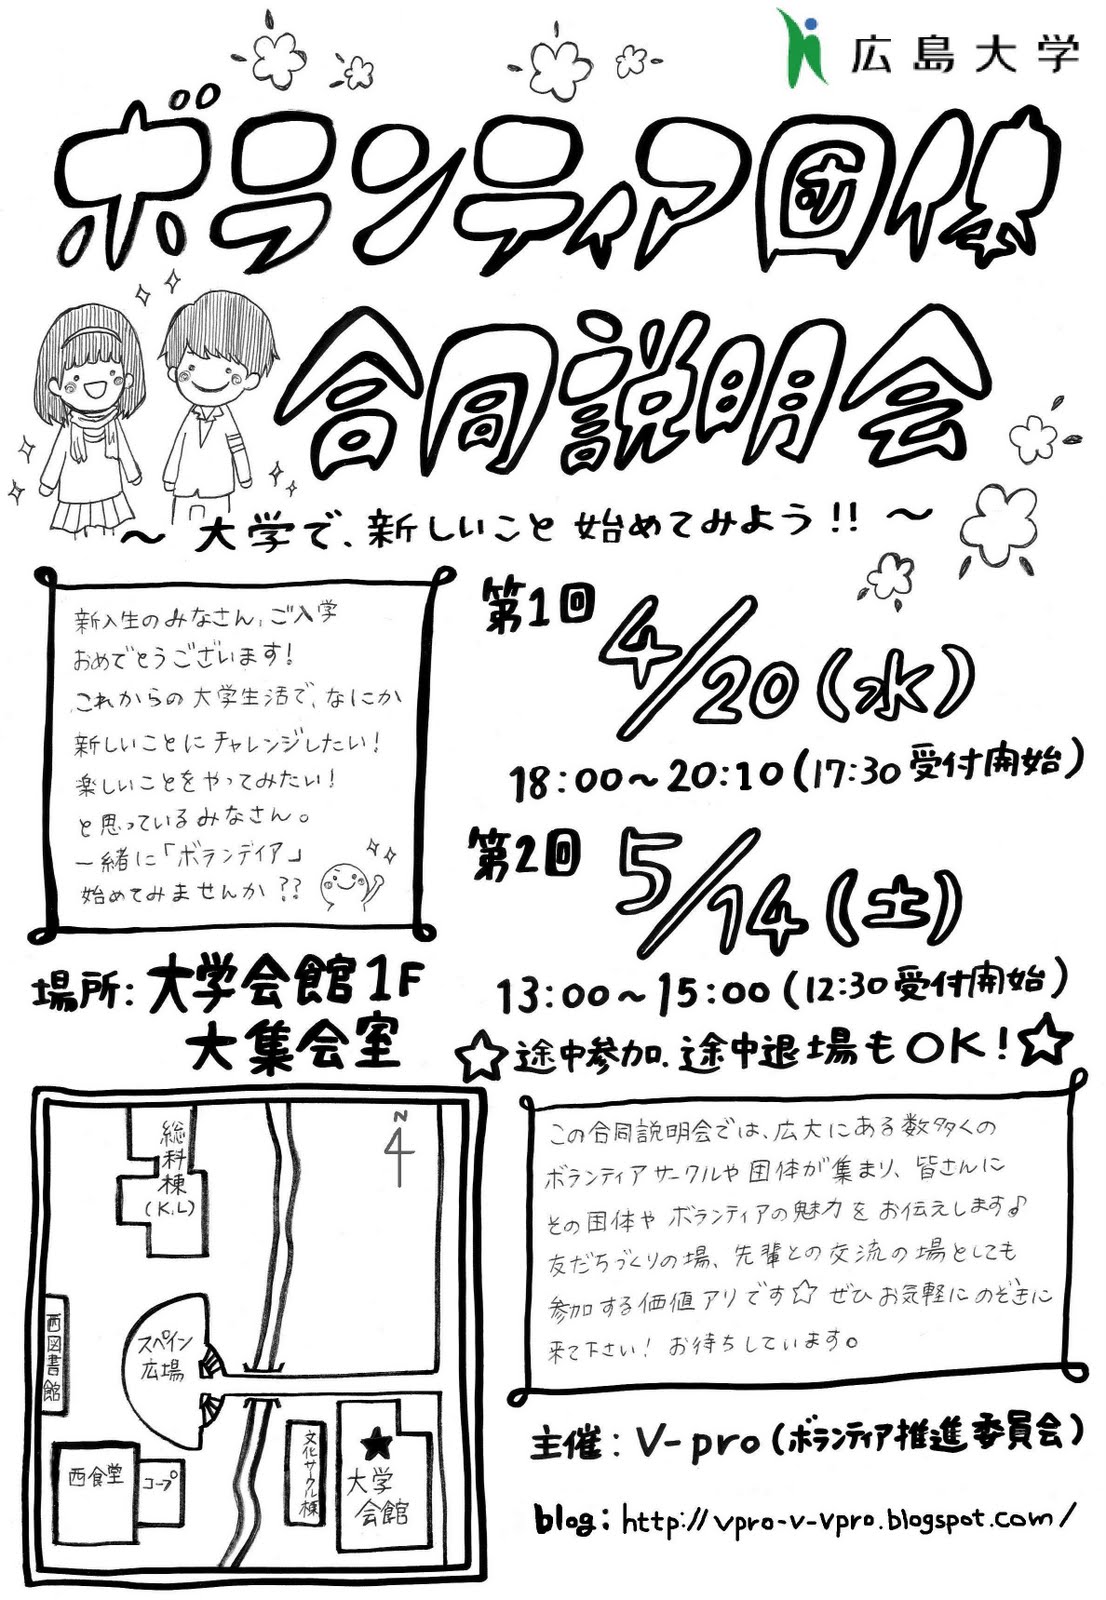 広島大学
ボランティア団体
合同説明会
～大学で、新しいこと始めてみよう!!～
新入生のみなさん、ご入学
おめでとうございます!
これからの大学生活で、なにか
新しいことにチャレンジしたい!
楽しいことをやってみたい!
と思っているみなさん。
一緒に「ボランティア」
始めてみませんか??
第1回
4/20(水)
18:00～20:10(17:30受付開始)
第2回
5/14(土)
13:00～15:00(12:30受付開始)
☆途中参加、途中退場もOK!☆
場所:大学会館1F
大集会室
N
総科棟
(K,L)
西図書館
スペイン
広場
西食堂
コープ
文化サークル棟
★
大学
会館
この合同説明会では、広大にある数多くの
ボランティアサークルや団体が集まり、皆さんに
その団体やボランティアの魅力をお伝えします♪
友だちづくりの場、先輩との交流の場としても
参加する価値アリです☆ぜひお気軽にのぞきに
来て下さい!お待ちしています。
主催:V-pro(ボランティア推進委員会)
blog:http://vpro-v-vpro.blogspot.com/